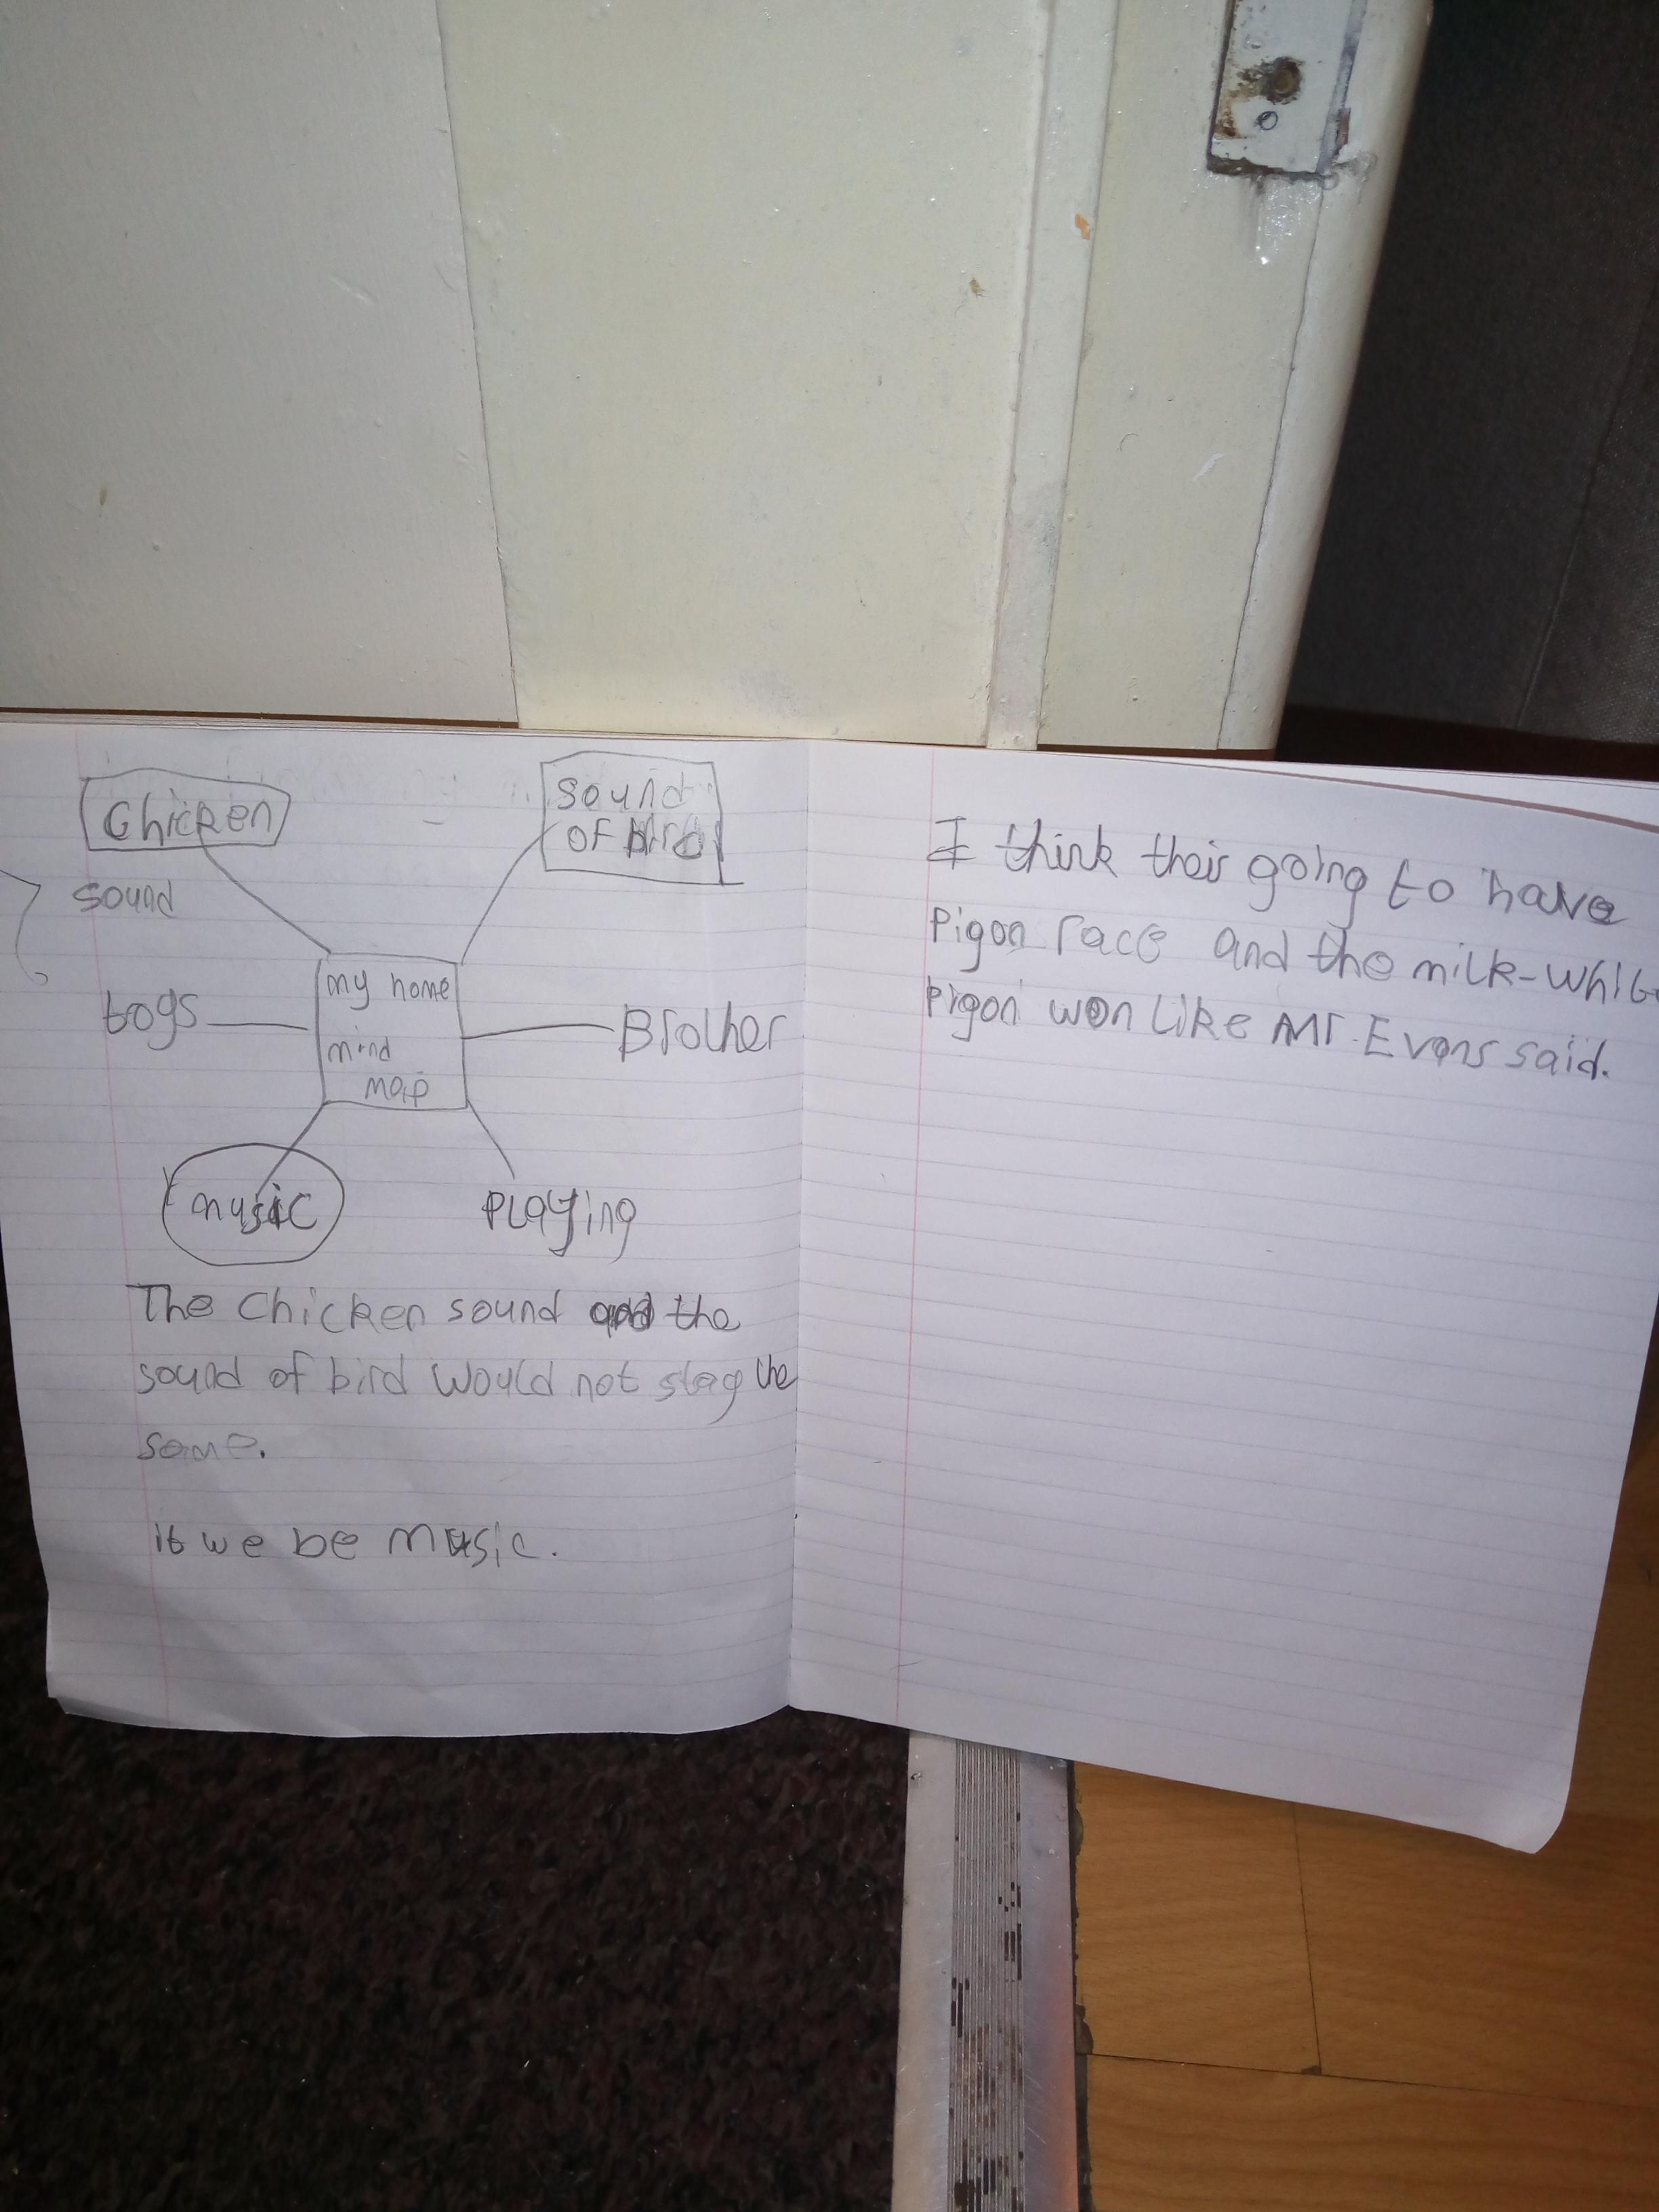 Chicken
sound
sound
of bird
togs
my home
mind
map
Brother
music
Playing
The Chicken sound and the
sound of bird would not stay the
same.
it we be music.
I think their going to have
Pigon race and the milk-white
pigon won like Mr. Evans said.